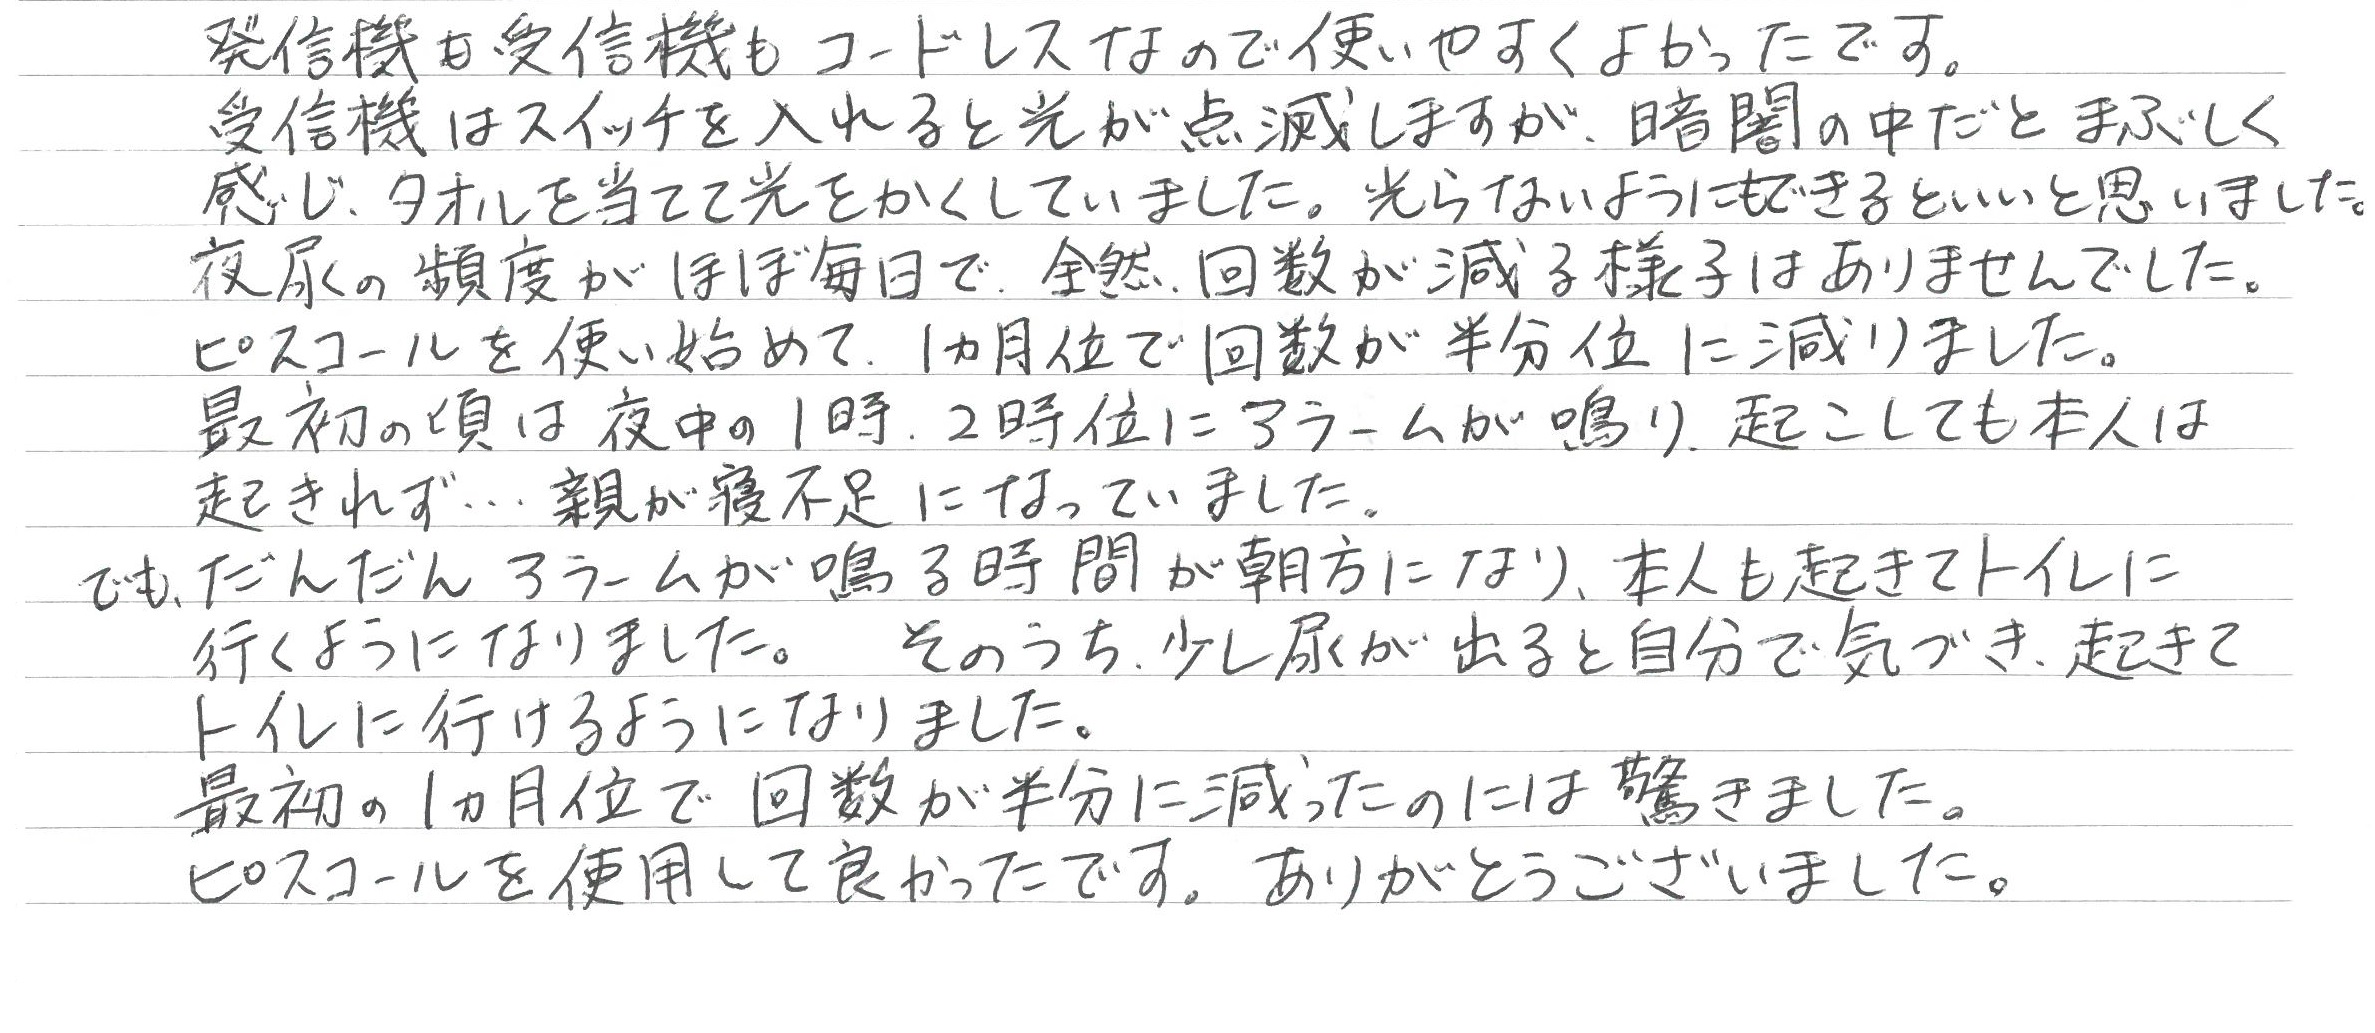 発信機も受信機もコードレスなので使いやすくよかったです。
受信機はスイッチを入れると光が点滅しますが、暗闇の中だとまぶしく
感じ、タオルを当てて光をかくしていました。光らないようにもできるといいと思いました。
夜尿の頻度がほぼ毎日で、全然、回数が減る様子はありませんでした。
ピスコールを使い始めて、1ヵ月位で回数が半分位に減りました。
最初の頃は夜中の1時、2時位にアラームが鳴り、起こしても本人は
起きれず…親が寝不足になっていました。
でも、だんだんアラームが鳴る時間が朝方になり、本人も起きてトイレに
行くようになりました。 そのうち、少し尿が出ると自分で気づき、起きて
トイレに行けるようになりました。
最初の1ヵ月位で回数が半分に減ったのには驚きました。
ピスコールを使用して良かったです。ありがとうございました。